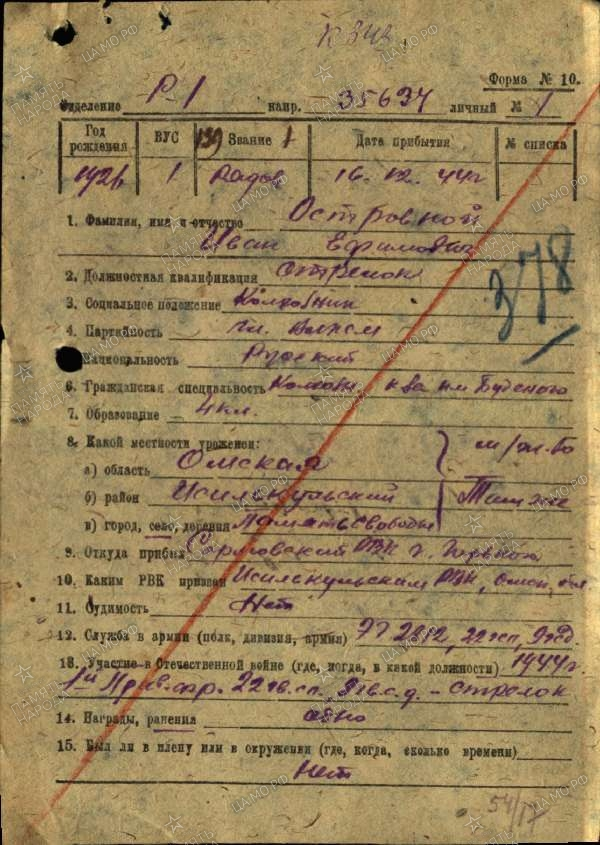 К 342
Форма № 10.
Отделение Р-1 канр. 35637 личный № 1
Год рождения ВУС 139 Звание 1 Дата прибытия № списка
1926 1 Рядов 16. 12. 44г
1. Фамилия, имя и отчество Островной
Иван Ефимович
378
2. Должностная квалификация Стрелок
3. Социальное положение Колхозник
4. Партийность чл. Влксм
Национальность Русский
6. Гражданская специальность к-за им Буденого
7. Образование 4 кл.
8. Какой местности уроженец: м/ж-во
а) область Омская
б) район Исилькульский Там же
в) город, село, деревня Память Свободы
9. Откуда прибыл Сормовский РВК г. Горького
10. Каким РВК призван Исилькульским РВК, Омск, обл.
11. Судимость Нет
12. Служба в армии (полк, дивизия, армия) 2812, 22
13. Участие в Отечественной войне (где, когда, в какой должности) 1944г.
1й Приб. фр. 22 гв. сп. 9 гв. с. д. - Стрелок
14. Награды, ранения
15. Был ли в плену или в окружении (где, когда, сколько времени)
Нет
54/17
ЦАМО.РФ
ПАМЯТЬ НАРОДА